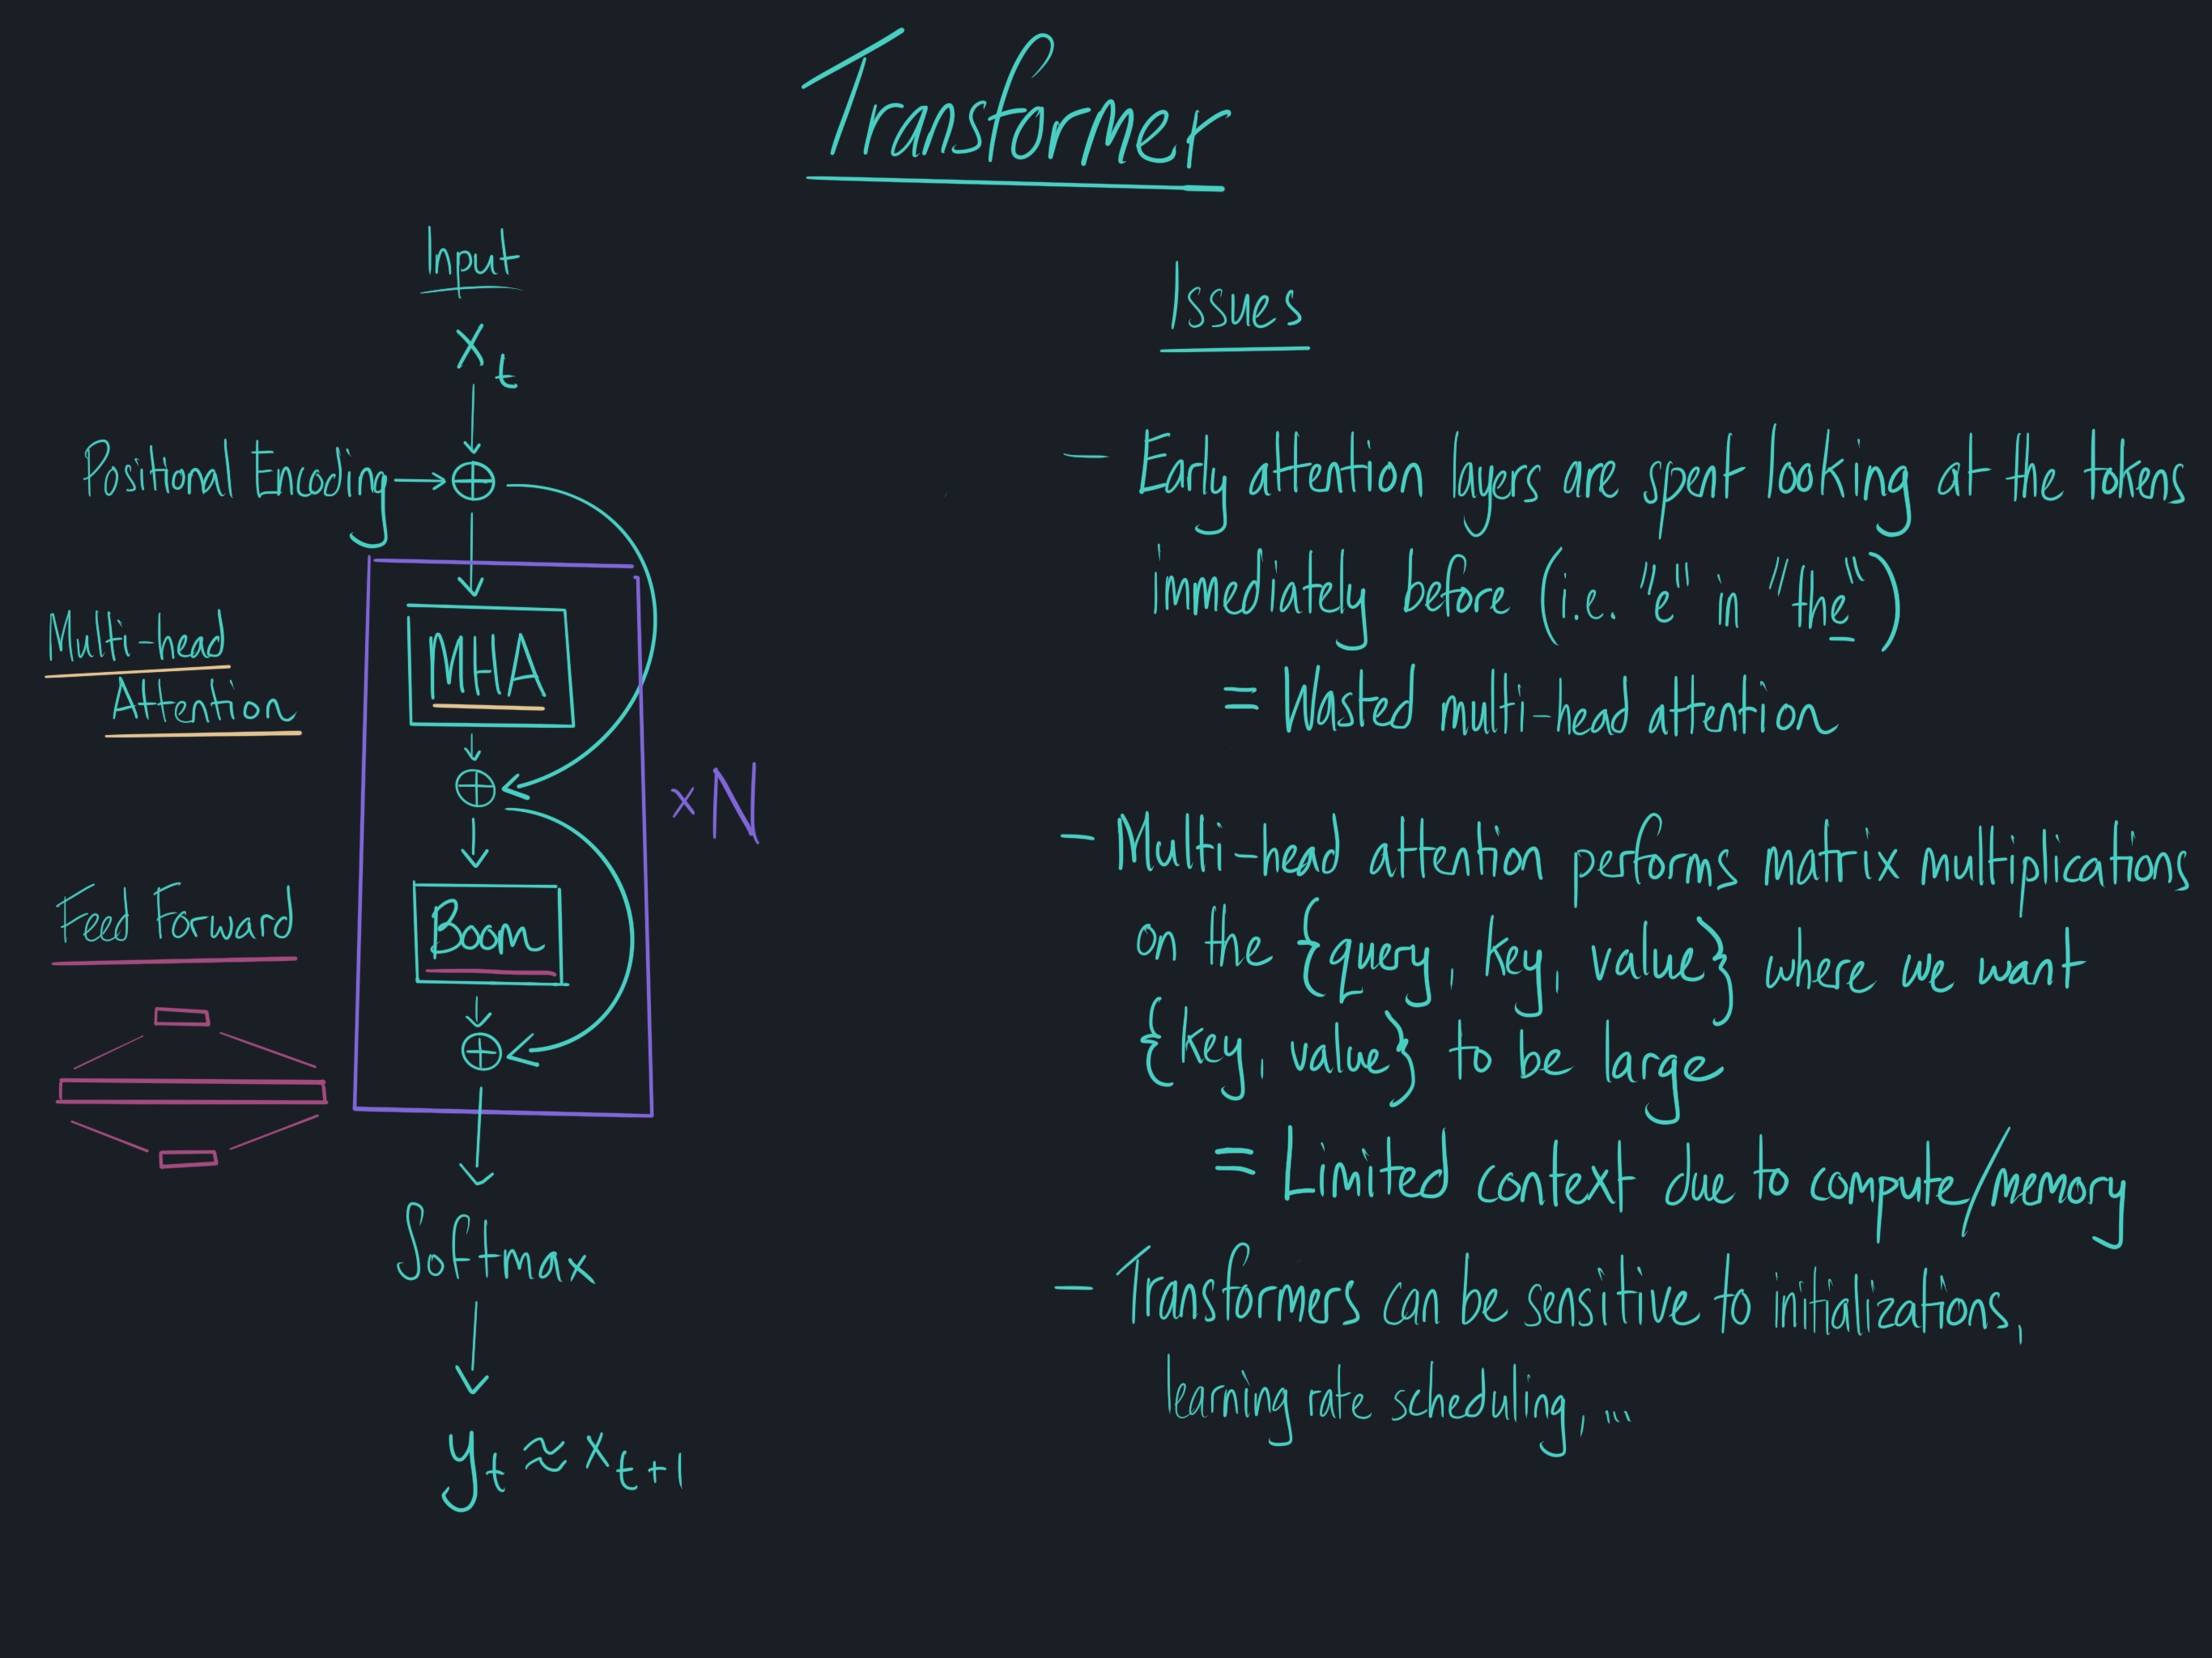 Transformer
Input
x_t
Positional Encoding
Multi-head
Attention
MHA
×N
Feed Forward
Boom
Softmax
y_t ≈ x_{t+1}
Issues
– Early attention layers are spent looking at the tokens
immediately before (i.e. "e" in "the")
= Wasted multi-head attention
– Multi-head attention performs matrix multiplications
on the {query, key, value} where we want
{key, value} to be large
= Limited context due to compute/memory
– Transformers can be sensitive to initializations,
learning rate scheduling, ...